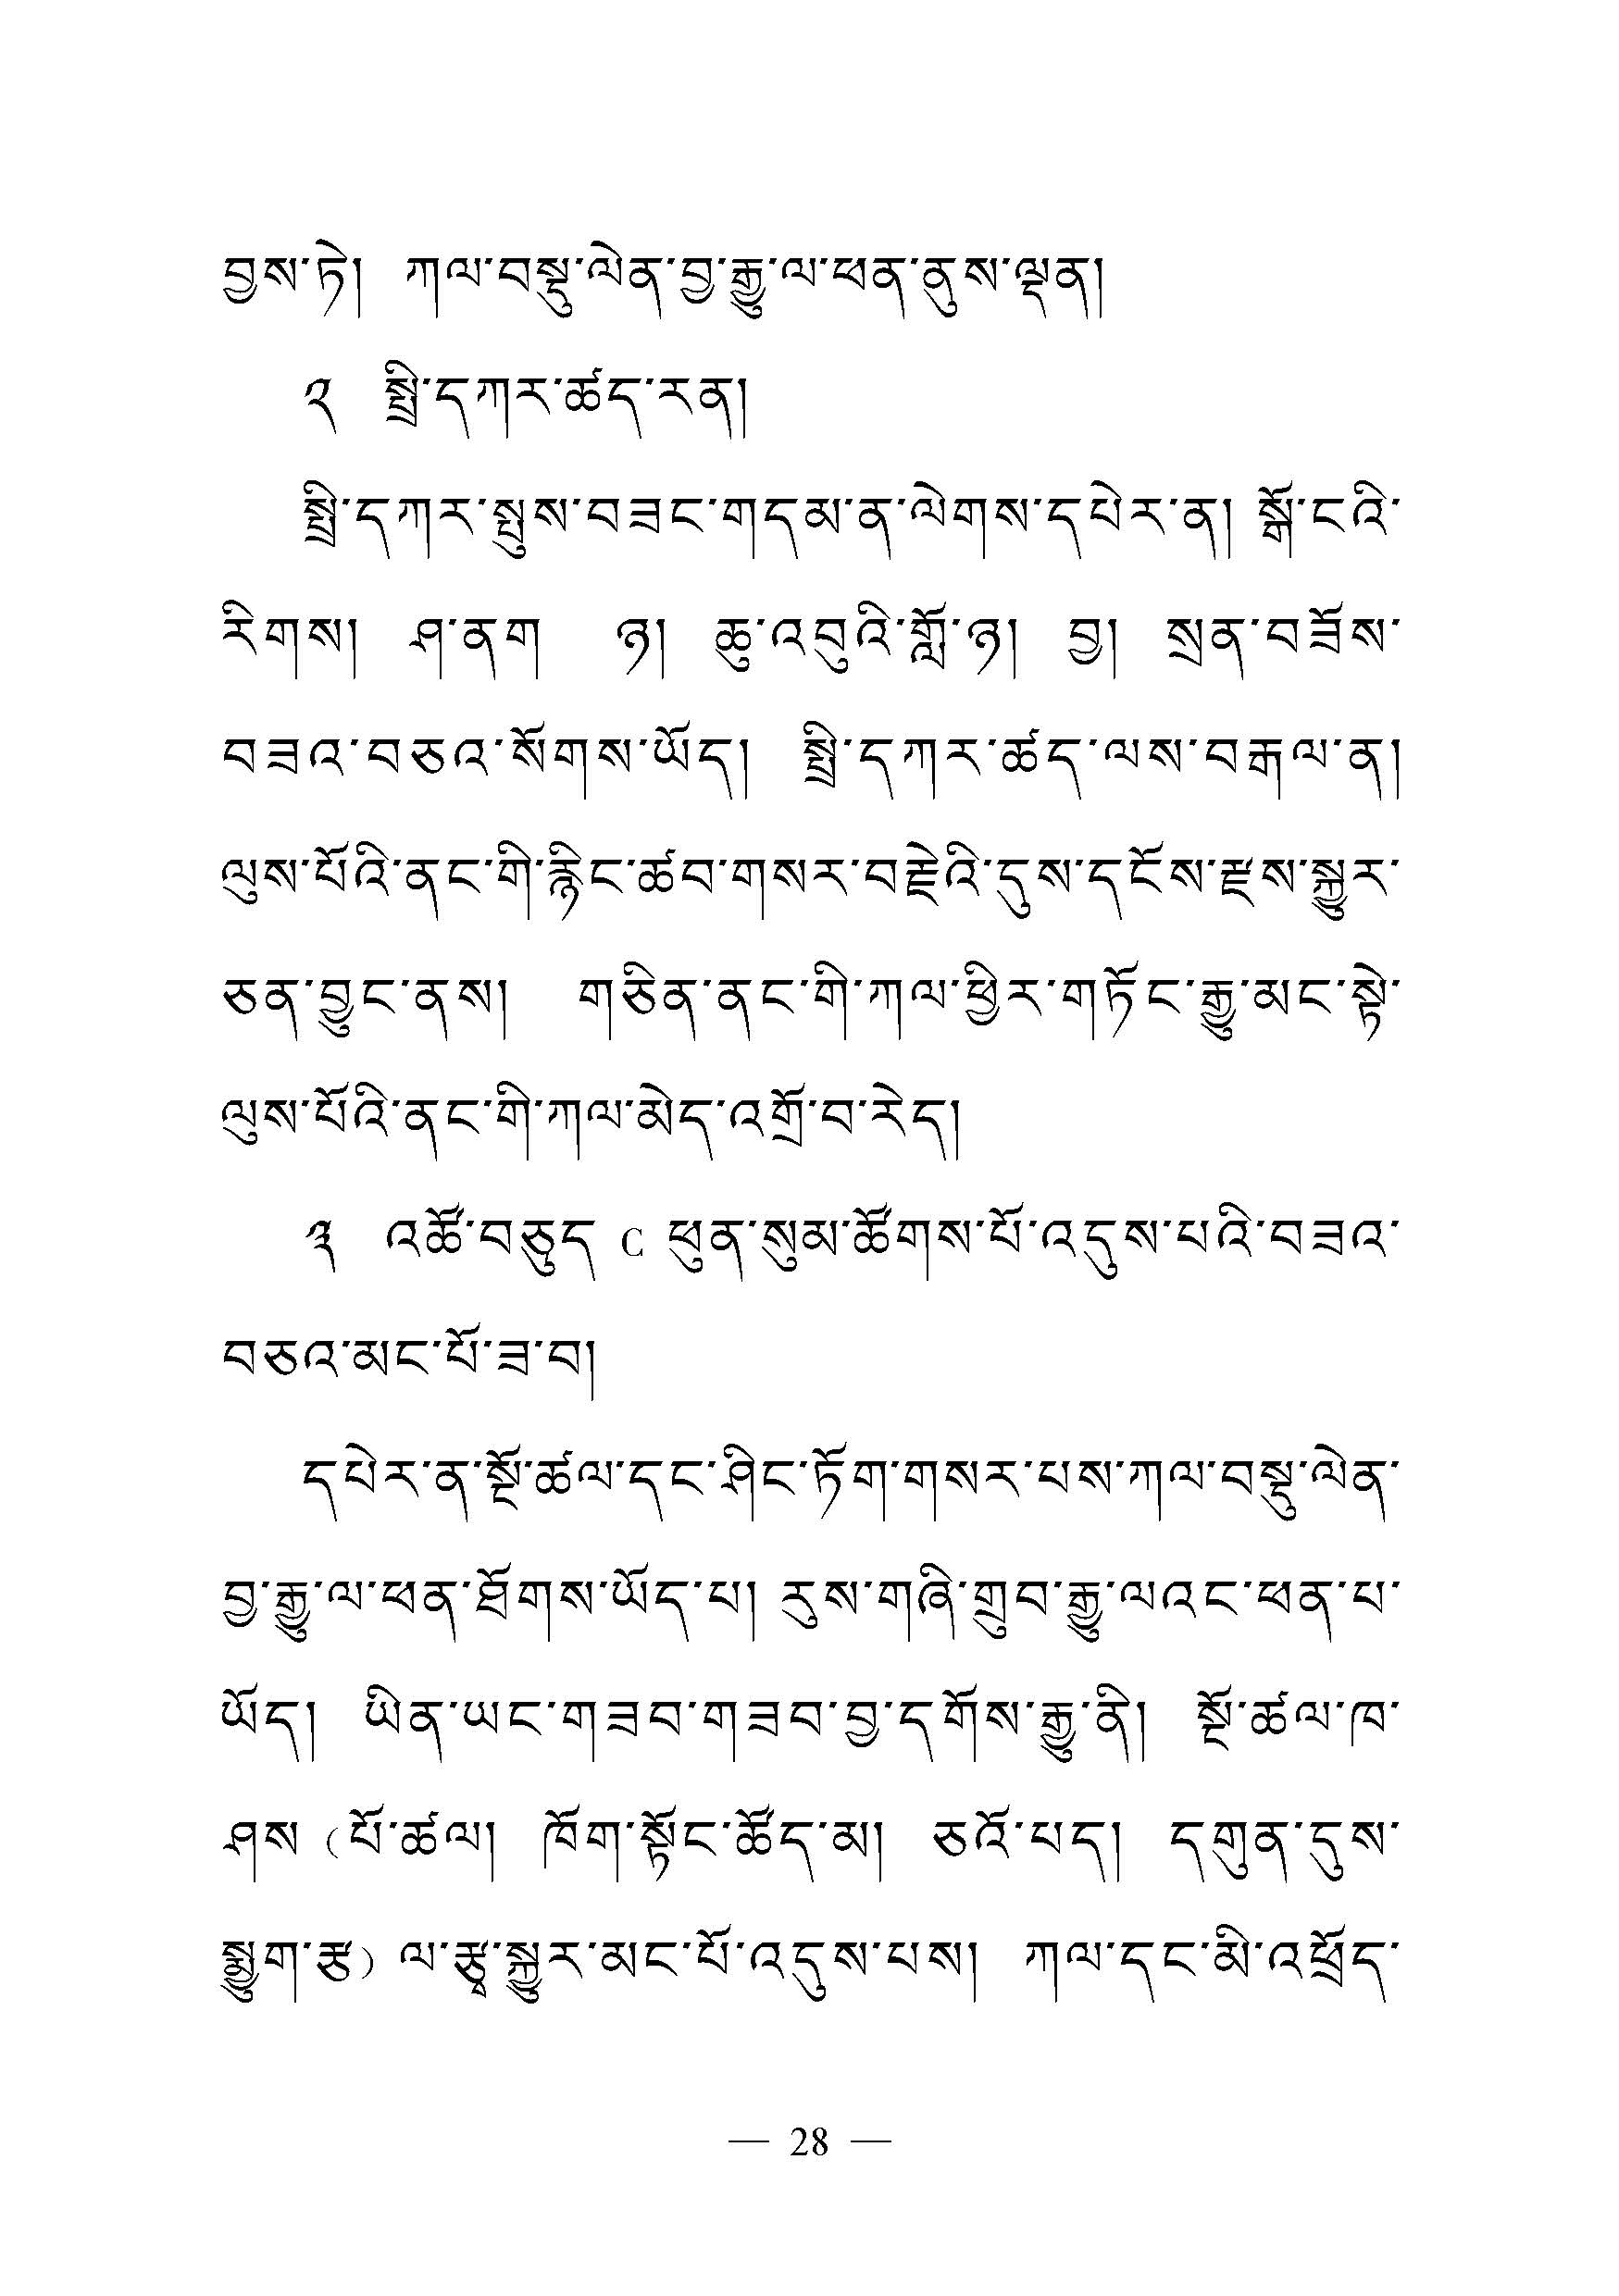 བྱས་ཏེ།  ཀལ་བསྡུ་ལེན་བྱ་རྒྱུ་ལ་ཕན་ནུས་ལྡན།
༢  སྤྲི་དཀར་ཚད་རན།
སྤྲི་དཀར་སྤུས་བཟང་གདམ་ན་ལེགས་དཔེར་ན། སྒོ་ངའི་
རིགས།  ཤ་ནག  ཉ།  ཆུ་འབུའི་གློ་ཉ།  བྱ།  སྲན་བཟོས་
བཟའ་བཅའ་སོགས་ཡོད།  སྤྲི་དཀར་ཚད་ལས་བརྒལ་ན།
ལུས་པོའི་ནང་གི་རྙིང་ཚབ་གསར་བརྗེའི་དུས་དངོས་རྫས་སྐྱུར་
ཅན་བྱུང་ནས།  གཅིན་ནང་གི་ཀལ་ཕྱིར་གཏོང་རྒྱུ་མང་སྟེ་
ལུས་པོའི་ནང་གི་ཀལ་མེད་འགྲོ་བ་རེད།
༣  འཚོ་བཅུད C ཕུན་སུམ་ཚོགས་པོ་འདུས་པའི་བཟའ་
བཅའ་མང་པོ་ཟ་བ།
དཔེར་ན་སྔོ་ཚལ་དང་ཤིང་ཏོག་གསར་པས་ཀལ་བསྡུ་ལེན་
བྱ་རྒྱུ་ལ་ཕན་ཐོགས་ཡོད་པ། རུས་གཞི་གྲུབ་རྒྱུ་ལའང་ཕན་པ་
ཡོད།  ཡིན་ཡང་གཟབ་གཟབ་བྱ་དགོས་རྒྱུ་ནི།  སྔོ་ཚལ་ཁ་
ཤས (པོ་ཚལ།  ཁོག་སྟོང་ཚོད་མ།  ཅའོ་པད།  དགུན་དུས་
སྨྱུག་རྩ) ལ་རྩྭ་སྐྱུར་མང་པོ་འདུས་པས།  ཀལ་དང་མི་འཕྲོད་
— 28 —